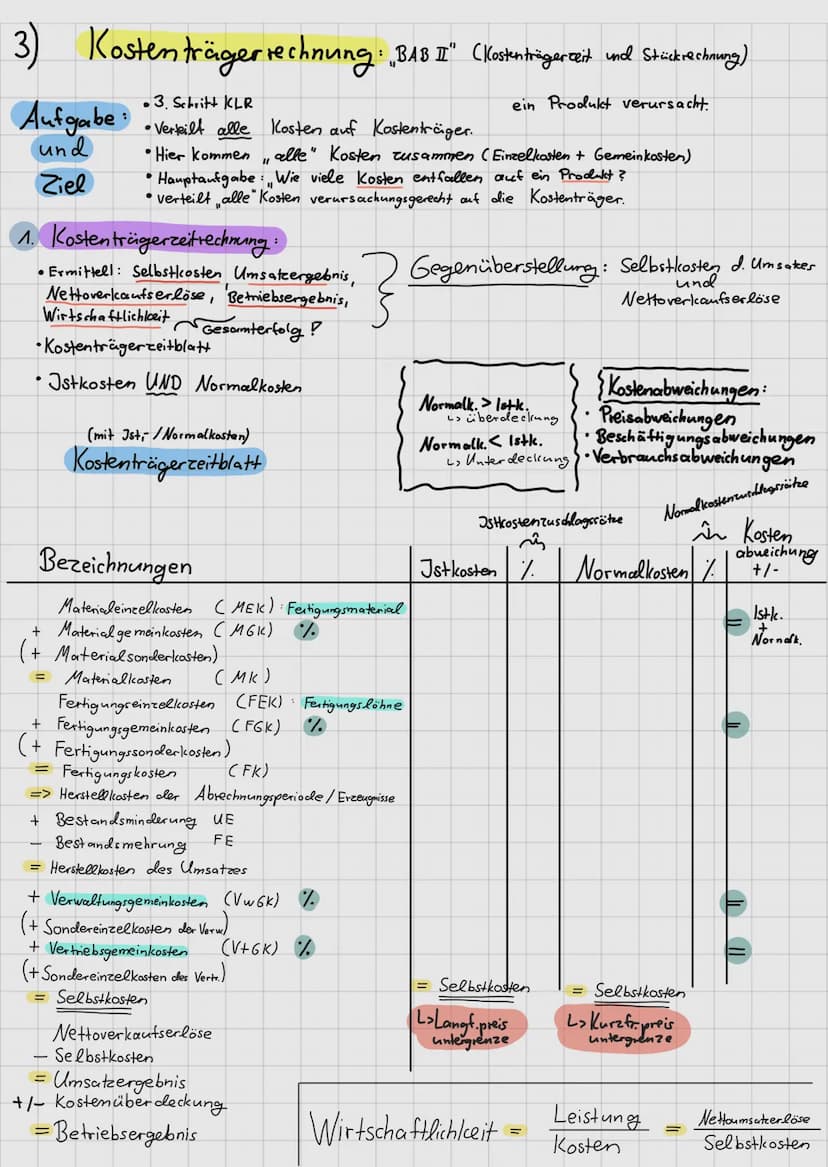 3) Kostenträgerrechnung: „BAB II" (Kostenträgerzeit und Stückrechnung)
Aufgabe: und Ziel
• 3. Schritt KLR
ein Produkt verursacht.
• Verteilt alle Kosten auf Kostenträger.
• Hier kommen „alle" Kosten zusammen (Einzelkosten + Gemeinkosten)
• Hauptaufgabe: „Wie viele Kosten entfallen auf ein Produkt?
• verteilt „alle" Kosten verursachungsgerecht auf die Kostenträger.
1. Kostenträgerzeitrechnung:
• Ermittelt: Selbstkosten, Umsatzergebnis,
Nettoverkaufserlöse, Betriebsergebnis,
Wirtschaftlichkeit
Gesamterfolg!
Gegenüberstellung: Selbstkosten d. Umsatzes
und
Nettoverkaufserlöse
• Kostenträgerzeitblatt
• Istkosten UND Normalkosten
Normalk. > Istk.
↳ Überdeckung
Normalk. < Istk.
↳ Unterdeckung
Kostenabweichungen:
• Preisabweichungen
• Beschäftigungsabweichungen
• Verbrauchsabweichungen
(mit Ist,- /Normalkosten)
Kostenträgerzeitblatt
Istkostenzuschlagssätze
Normalkostenzuschlagssätze
Bezeichnungen
Istkosten % Normalkosten %
Kosten
abweichung
+/-
Materialeinzelkosten (MEK): Fertigungsmaterial
+ Materialgemeinkosten (MGK) %
(+ Materialsonderkosten)
= Materialkosten (MK)
= Istk.
+
Normalk.
Fertigungseinzelkosten (FEK): Fertigungslöhne
+ Fertigungsgemeinkosten (FGK) % =
(+ Fertigungssonderkosten)
= Fertigungskosten (FK)
=> Herstellkosten der Abrechnungsperiode/Erzeugnisse
+ Bestandsminderung UE
− Bestandsmehrung FE
= Herstellkosten des Umsatzes
+ Verwaltungsgemeinkosten (VwGK) % =
(+ Sondereinzelkosten der Verw.)
+ Vertriebsgemeinkosten (VtGK) % =
(+ Sondereinzelkosten des Vertr.)
= Selbstkosten
= Selbstkosten
↳ Langf. preis
untergrenze
= Selbstkosten
↳ Kurzfr. preis
untergrenze
Nettoverkaufserlöse
− Selbstkosten
= Umsatzergebnis
+/− Kostenüberdeckung
= Betriebsergebnis
Wirtschaftlichkeit = Leistung / Kosten = Nettoumsatzerlöse / Selbstkosten